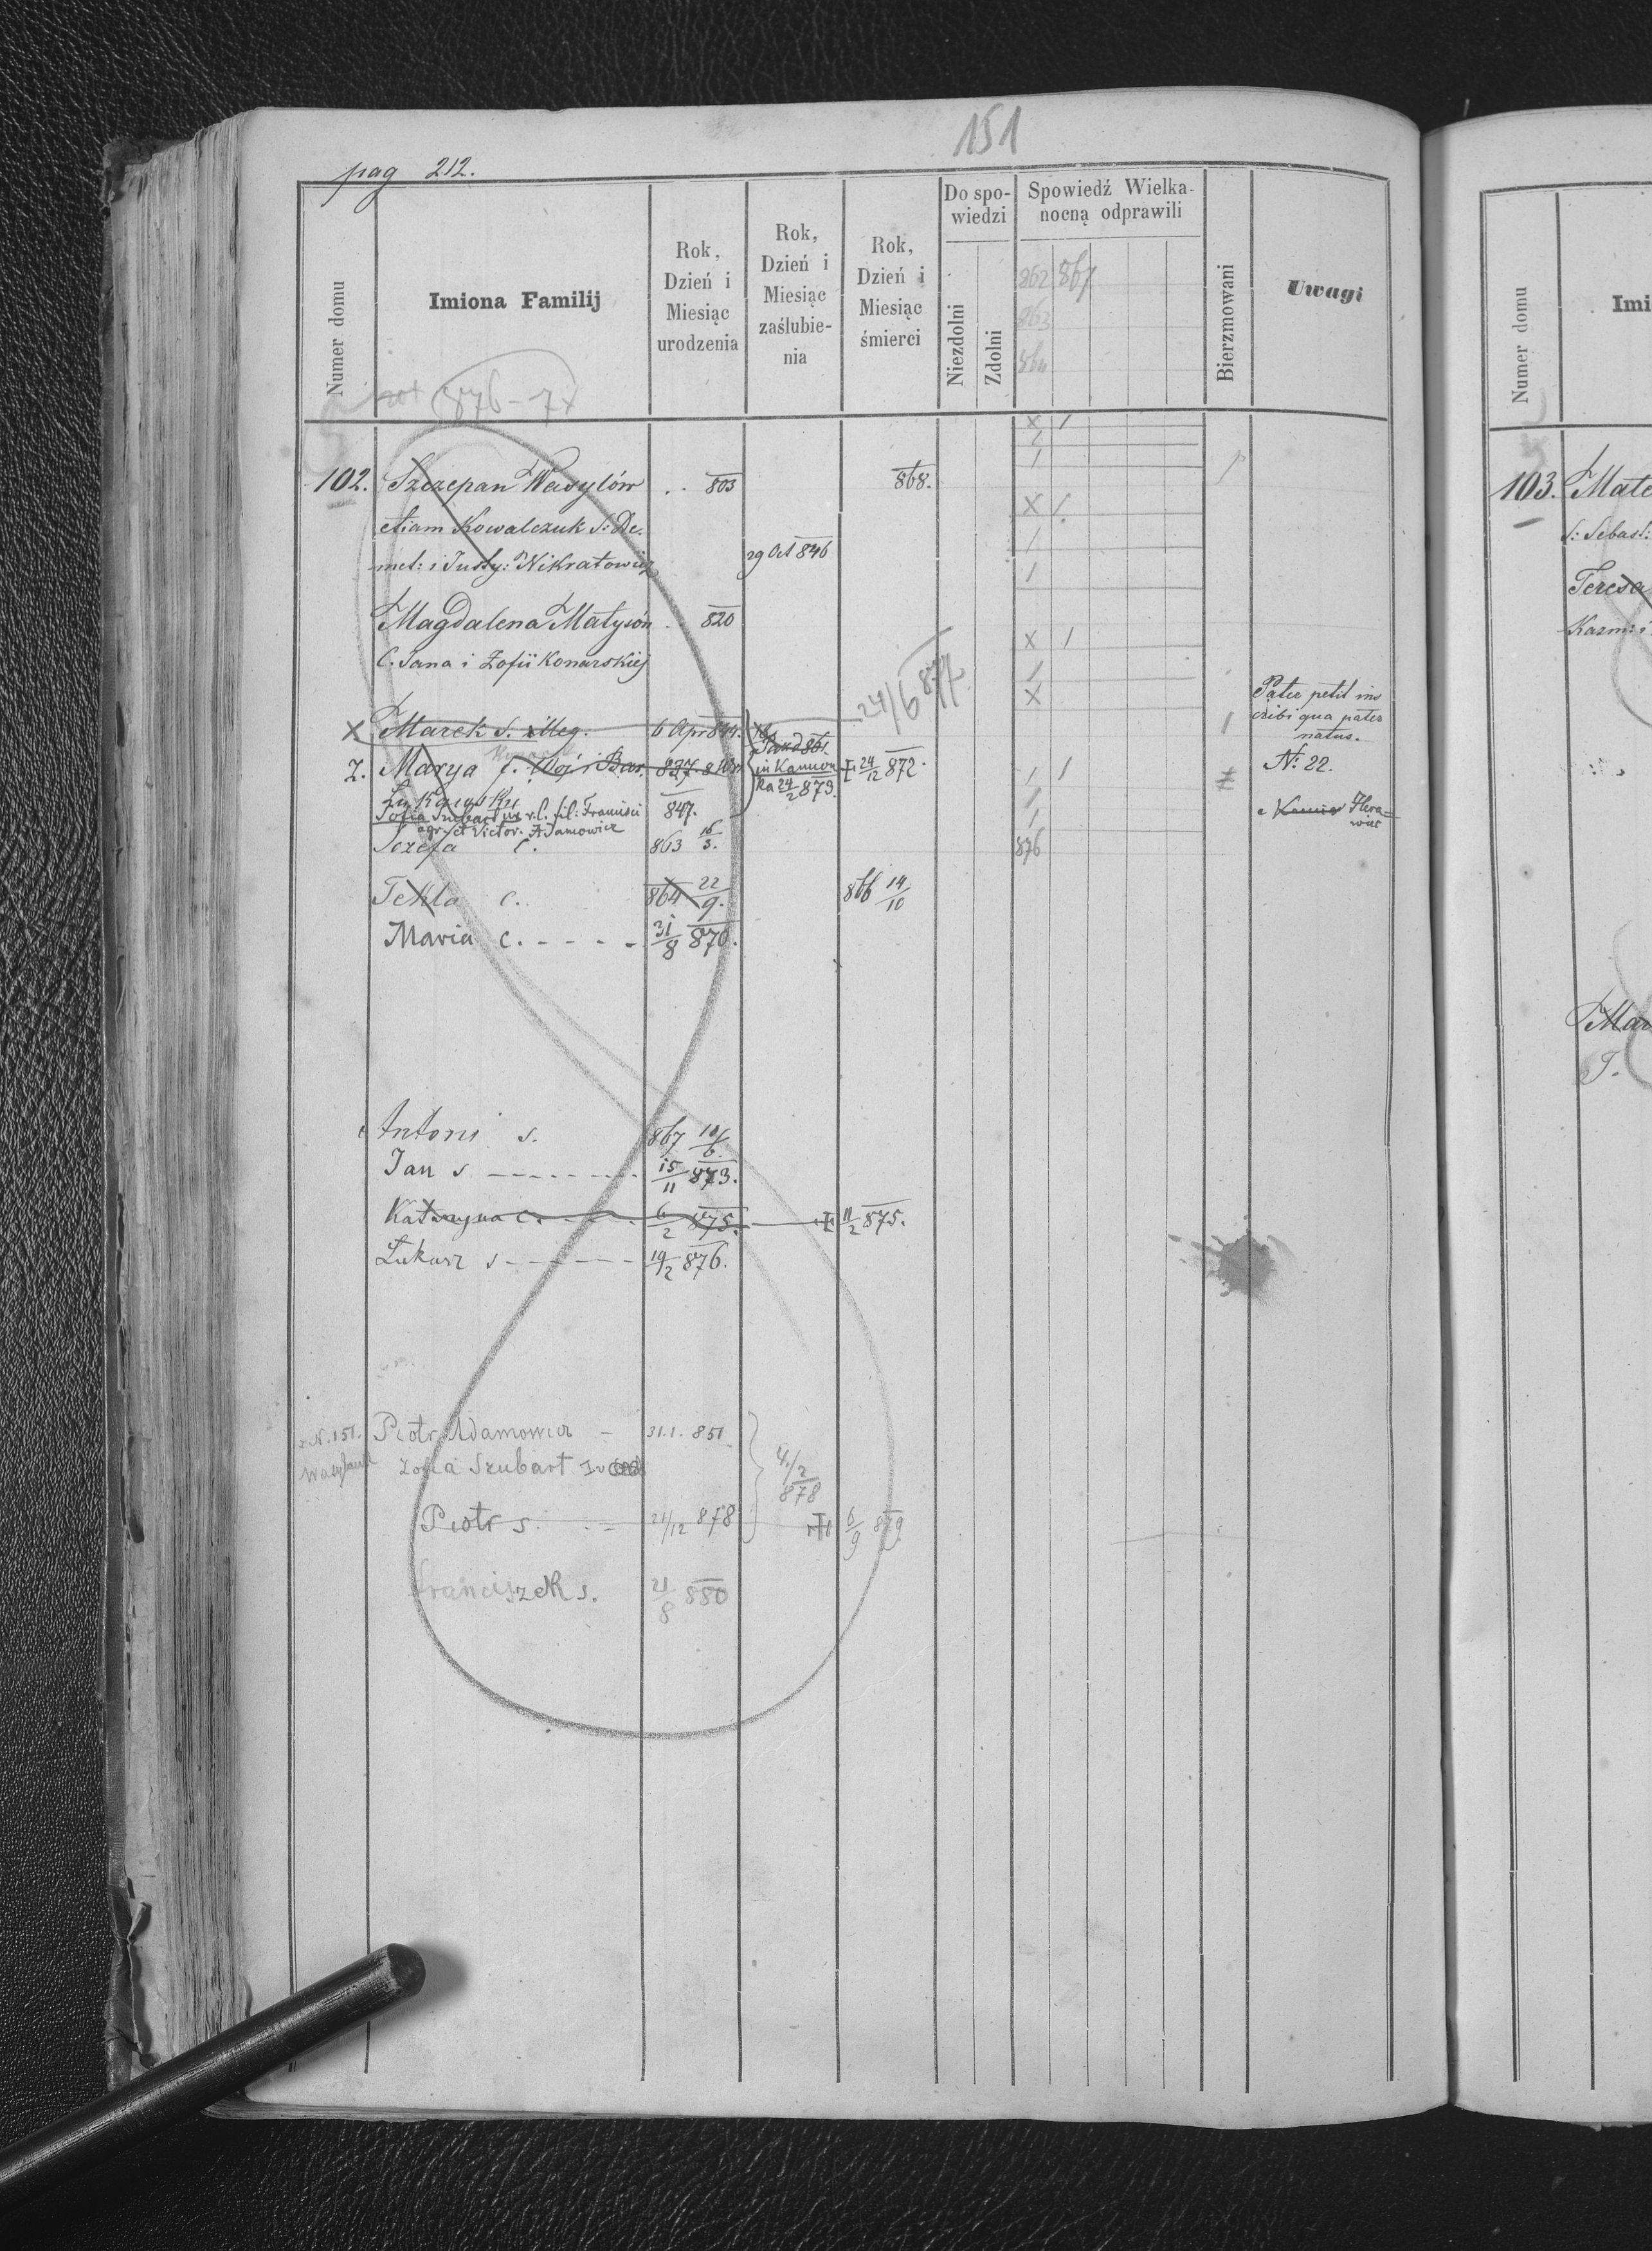 151
pag 212.
Numer domu
Imiona Familij
Rok, Dzień i Miesiąc urodzenia
Rok, Dzień i Miesiąc zaślubie-nia
Rok, Dzień i Miesiąc śmierci
Do spo-wiedzi
Niezdolni
Zdolni
Spowiedź Wielka-nocną odprawili
862 867
863
864
Bierzmowani
Uwagi
876 - 7x
102. Szczepan Wasylów . . 803 868.
etiam Kowalczuk S: De.
met: i Justy: Nikratowicz 29 Oct 846
Magdalena Matysów . 820
C. Jana i Zofii Konarskiej
24/6 877
X Marek S. illeg. 6 Apr 844.
Pater petit ins
cribi qua pater
natus.
2. Marya C. Woj i Bar. 837. 24/12 872.
in Kamion
ka 24/2 873.
N: 22.
Zofia Szubart v. l. fil: Francisci 847.
agr. et Victor. Adamowicz
Jozefa C. 863 16/3. 876
Tekla C. 864 22/9. 866 14/10
Maria C. - - - - 31/8 870.
Antoni S. 867 10/6.
Jan S - - - - - - 15/11 873.
Katarzyna C. - - - 6/2 875. 11/2 875.
Łukasz S - - - - - 14/2 876.
z N. 151. Piotr Adamowicz - 31.1. 851
Zofia Szubart
4./2 878
Piotr S. 21/12 878 6/9 879
Franciszek S. 21/8 880
Numer domu
Imi
103. Mate
S: Sebast:
Teresa
Kazm: i
Mar